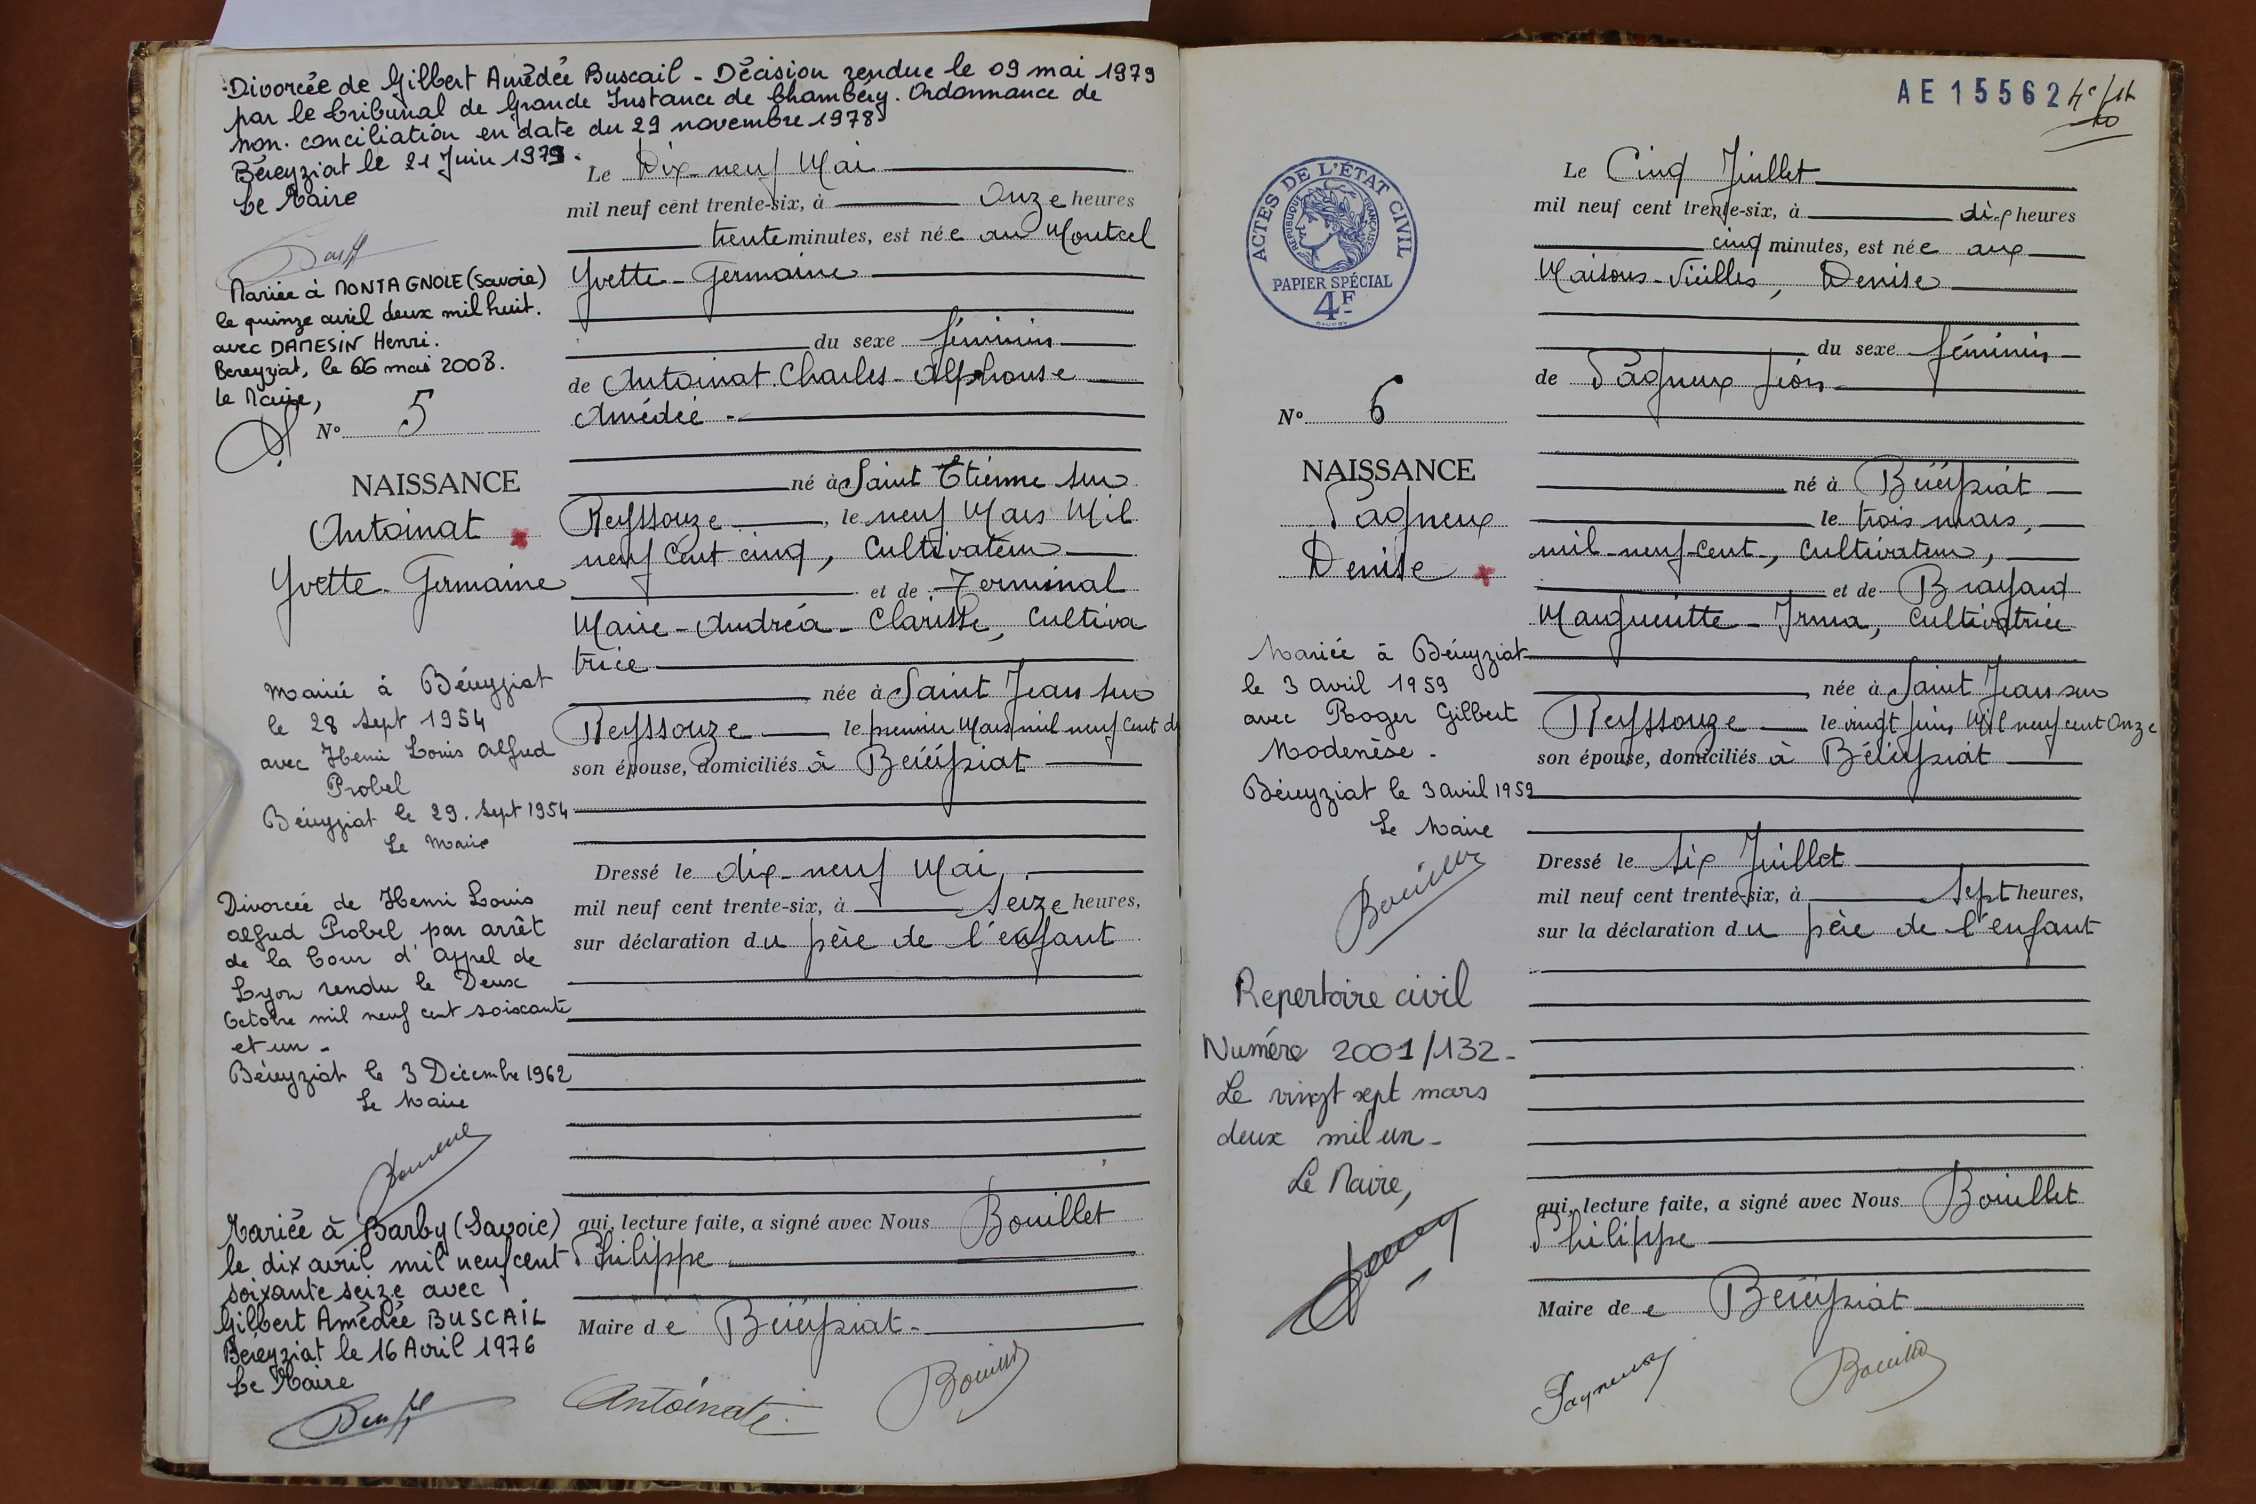 Divorcée de Gilbert Amédée Buscail - Décision rendue le 09 mai 1979
par le tribunal de Grande Instance de Chambéry. Ordonnance de
non-conciliation en date du 29 novembre 1978
Béreyziat le 21 Juin 1979.
Le Maire
Mariée à MONTAGNOLE (Savoie)
le quinze avril deux mil huit.
avec DAMESIN Henri.
Bereyziat, le 06 mai 2008.
le Maire,
N° 5
NAISSANCE
Antoinat
Yvette-Germaine
Mariée à Béreyziat
le 28 Sept 1954
avec Henri Louis Alfred
Probel
Béreyziat le 29. Sept 1954
Le Maire
Divorcée de Henri Louis
Alfred Probel par arrêt
de la Cour d'Appel de
Lyon rendu le Deux
Octobre mil neuf cent soixante
et un -
Béreyziat le 3 Décembre 1962
Le Maire
Mariée à Barby (Savoie)
le dix avril mil neuf cent
soixante seize avec
Gilbert Amédée BUSCAIL
Béreyziat le 16 Avril 1976
Le Maire
Le Dix-neuf Mai
mil neuf cent trente-six, à onze heures
trente minutes, est née au Montcel
Yvette-Germaine
du sexe féminin
de Antoinat Charles-Alphonse
Amédée -
né à Saint Etienne sur
Reyssouze, le neuf Mars Mil
neuf cent cinq, Cultivateur
et de Terminal
Marie-Andréa-Clarisse, Cultiva
trice
née à Saint Jean sur
Reyssouze le premier Mars mil neuf cent
son épouse, domiciliés à Béréyziat
Dressé le dix-neuf Mai,
mil neuf cent trente-six, à Seize heures,
sur déclaration du père de l'enfant
qui, lecture faite, a signé avec Nous Bouillet
Philippe
Maire de Béréyziat -
Antoinat
Bouillet
AE 15562
ACTES DE L'ÉTAT CIVIL
RÉPUBLIQUE FRANÇAISE
PAPIER SPÉCIAL
4F
N° 6
NAISSANCE
Pagneux
Denise
Mariée à Béreyziat
le 3 avril 1959
avec Roger Gilbert
Modenèse -
Béreyziat le 3 avril 1959
Le Maire
Bouillet
Repertoire civil
Numéro 2001/132 -
Le vingt sept mars
deux mil un -
Le Maire,
Le Cinq Juillet
mil neuf cent trente-six, à dix heures
cinq minutes, est née aux
Maisons-Vieilles, Denise
du sexe féminin
de Pagneux Léon
né à Béréyziat
le trois mars,
mil-neuf-cent-, Cultivateur,
et de Brayard
Marguerite-Irma, Cultivatrice
née à Saint Jean sur
Reyssouze le vingt juin Mil neuf cent onze
son épouse, domiciliés à Béréyziat
Dressé le six Juillet
mil neuf cent trente-six, à sept heures,
sur la déclaration du père de l'enfant
qui, lecture faite, a signé avec Nous Bouillet
Philippe
Maire de Béréyziat
Pagneux
Bouillet